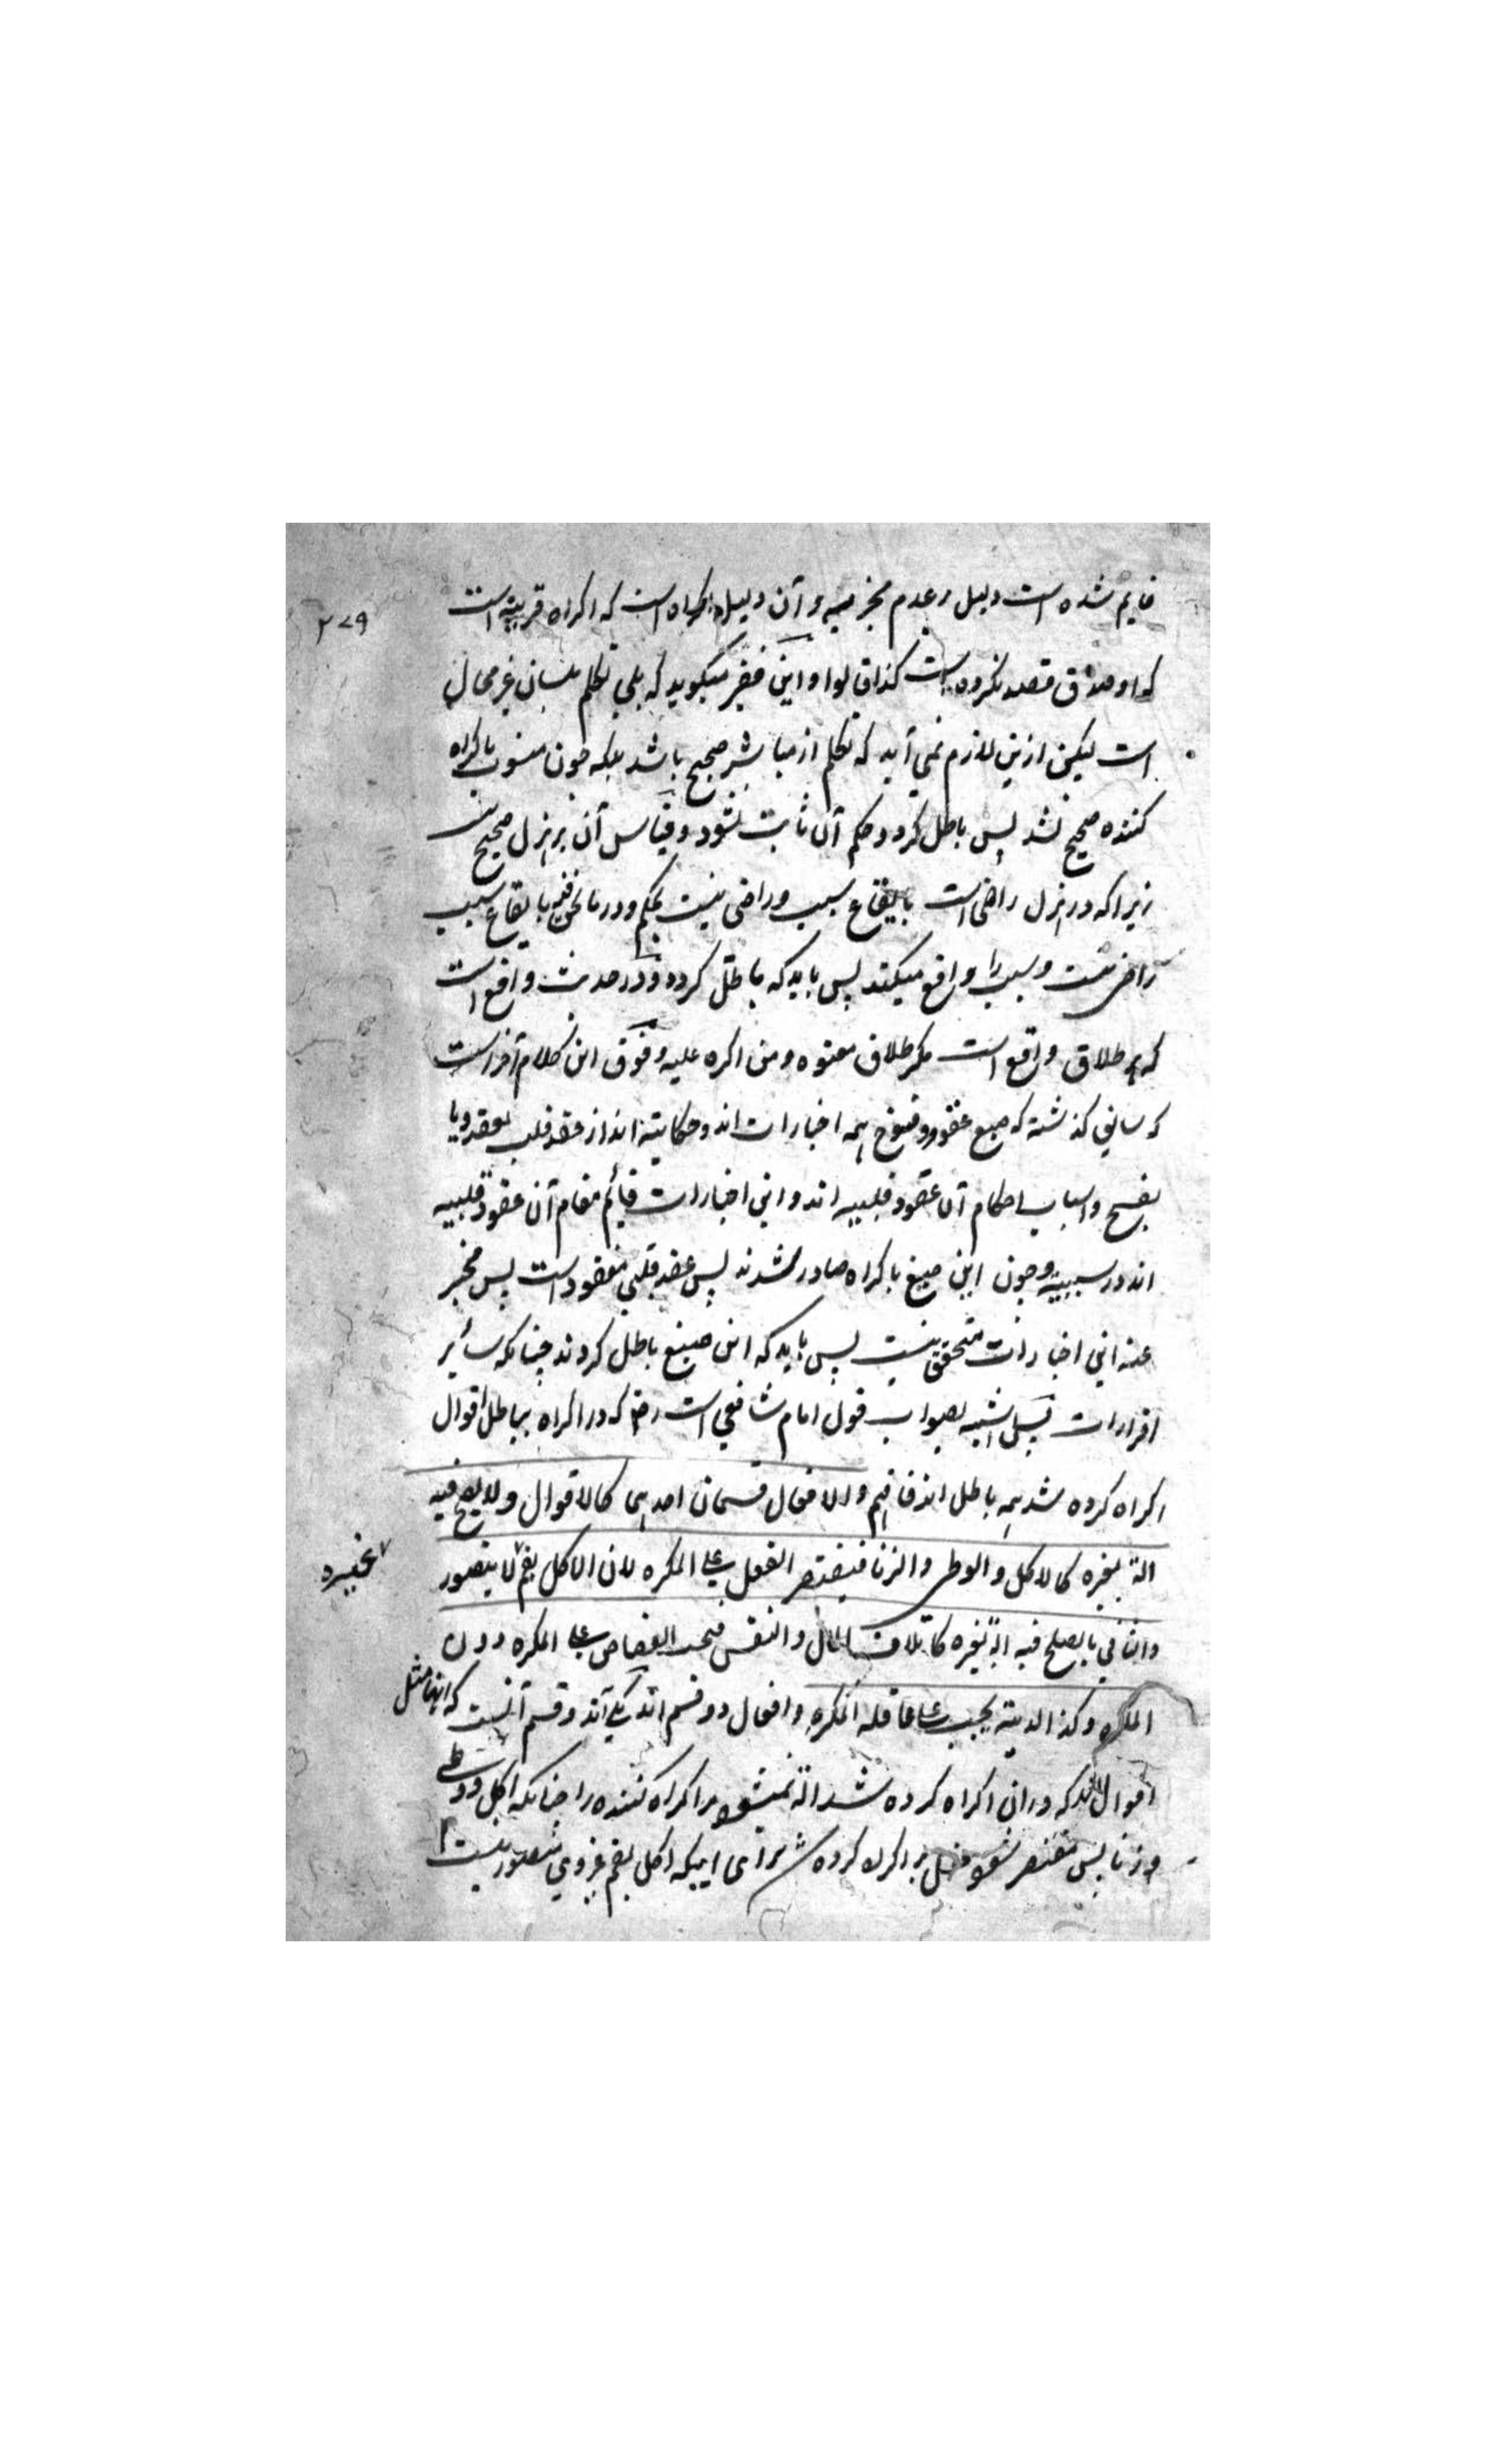 ۲۷۹
قایم شده است دلیل بر عدم مخبر عنه و آن دلیل اکراه است که اکراه قرینه است
که او صدق قصد نکرده است کذا قالوا و این فقیر میگوید که بلی تکلم بلسان غیر محال
است لیکن ازین لازم نمی آید که تکلم از مباشر صحیح باشد بلکه چون منسوب باکراه
کننده صحیح نشد پس باطل گردد و حکم آن ثابت نشود و قیاس آن بر هزل صحیح نیست
زیرا که در هزل راضی است بایقاع سبب و راضی نیست بحکم و در ما نحن فیه بایقاع سبب
راضی نیست و سبب را واقع میکند پس باید که باطل گردد و در حدیث واقع است
که هر طلاق واقع است مگر طلاق معتوه و من اکره علیه و فوق این کلام آخر است
که سابق گذشته که صیغ عقود و فسوخ همه اخبارات اند و حکایت اند از عقد قلب بعقد و یا
بفسخ و اسباب احکام آن عقود قلبیه اند و این اخبارات قائم مقام آن عقود قلبیه
اند در سببیة و چون این صیغ باکراه صادر شدند پس عقد قلبی مفقود است پس مخبر
عنه این اخبارات متحقق نیست پس باید که این صیغ باطل گردند چنانکه سائر
اقرارات پس اشبه بصواب قول امام شافعی است رض که در اکراه بباطل اقوال
اکراه کرده شد همه باطل اند فافهم والافعال قسمان احدهما کالاقوال ولا یصح فیه
الة لغیره کالاکل والوطی والزنا فیقتصر الفعل علی المکره لان الاکل بفم لا یتصور
غیره
والثانی ما یصلح فیه الة لغیره کاتلاف المال والنفس فیجب القصاص علی المکره دون
المکره وکذا الدیة یجب علی عاقلة المکره و افعال دو قسم اند یکی آند و قسم آنست که آنها مثل
اقوال اند که در آن اکراه کرده شد اله نمیشود مر اکراه کننده را چنانکه اکل و وطی
و زنا پس مقتصر شود فعل بر اکراه کرده شد برای اینکه اکل بفم غیر وی متصور نیست